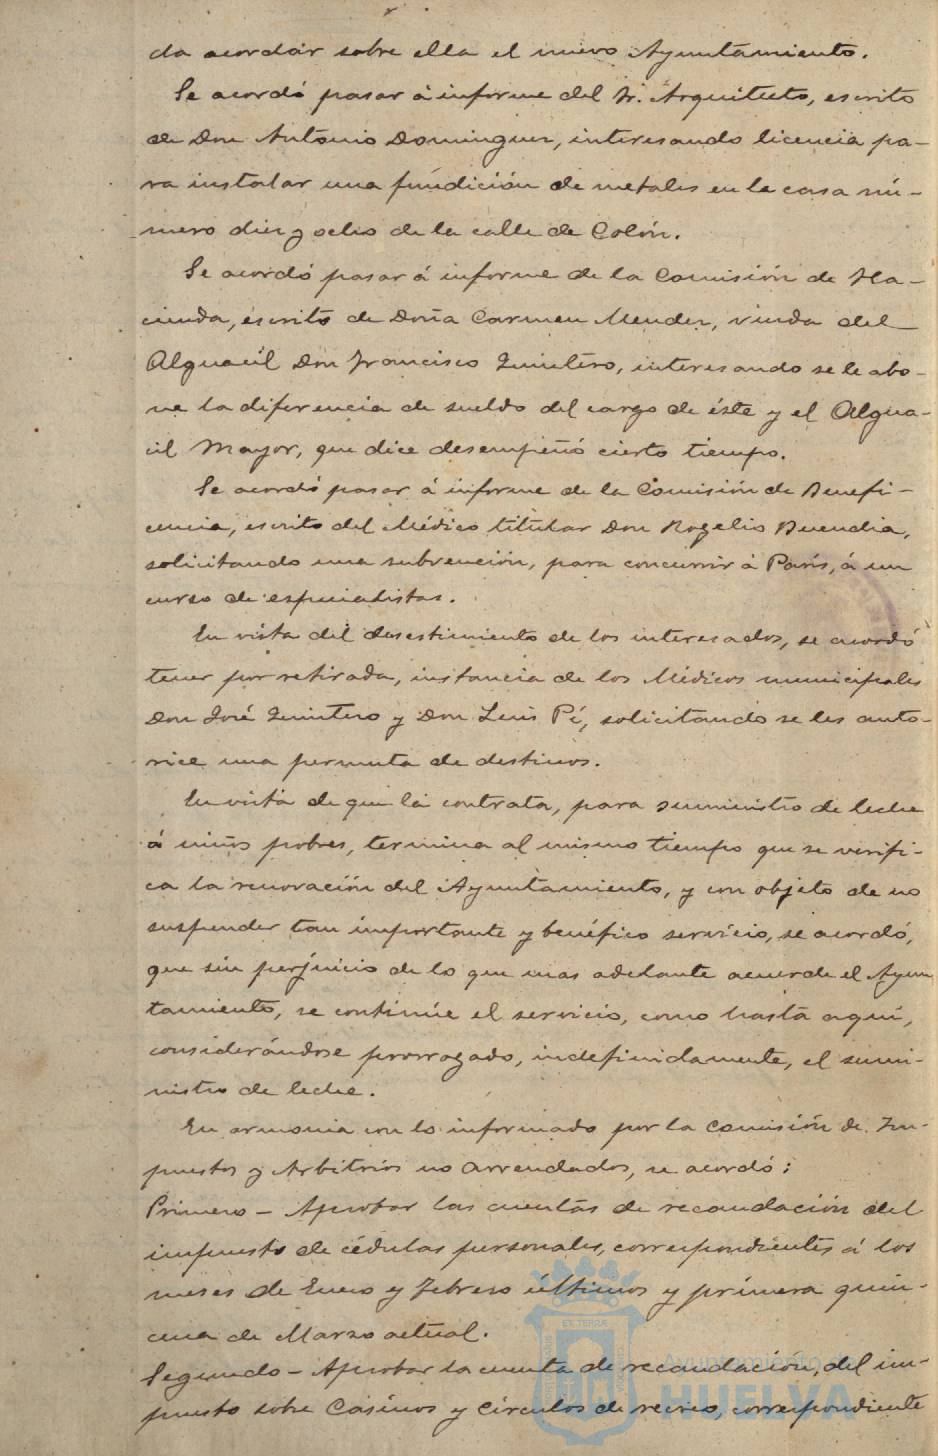 da acordar sobre ella el nuevo Ayuntamiento.
Se acordó pasar á informe del Sr. Arquitecto, escrito
de Don Antonio Dominguez, interesando licencia pa-
ra instalar una fundición de metales en la casa nú-
mero diez y ocho de la calle de Colón.
Se acordó pasar á informe de la Comisión de Ha-
cienda, escrito de Doña Carmen Mendez, viuda del
Alguacil Don Francisco Quintero, interesando se le abo-
ne la diferencia de sueldo del cargo de éste y el Algua-
cil Mayor, que dice desempeñó cierto tiempo.
Se acordó pasar á informe de la Comisión de Benefi-
cencia, escrito del Médico titular Don Rogelio Buendia,
solicitando una subvención, para concurrir á París, á un
curso de especialistas.
En vista del desestimiento de los interesados, se acordó
tener por retirada, instancia de los Médicos municipales
Don José Quintero y Don Luis Pí, solicitando se les auto-
rice una permuta de destinos.
En vista de que la contrata, para suministro de leche
á niños pobres, termina al mismo tiempo que se verifi-
ca la renovación del Ayuntamiento, y con objeto de no
suspender tan importante y benéfico servicio, se acordó,
que sin perjuicio de lo que mas adelante acuerde el Ayun
tamiento, se continúe el servicio, como hasta aquí,
considerándose prorrogado, indefinidamente, el sumi-
nistro de leche.
En armonia con lo informado por la Comisión de Im-
puestos y Arbitrios no arrendados, se acordó:
Primero - Aprobar las cuentas de recaudación del
impuesto de cédulas personales, correspondientes á los
meses de Enero y Febrero últimos y primera quin-
cena de Marzo actual.
Segundo - Aprobar la cuenta de recaudación, del im-
puesto sobre Casinos y Círculos de recreo, correspondiente
Ayuntamiento de
HUELVA